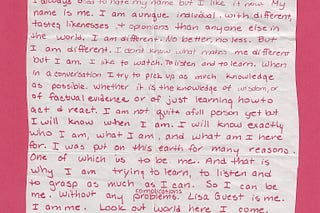 I always used to hate my name but I like it now My
name is me. I am a unique individual, with different,
tastes likenesses + opinions than anyone else in
the world, I am different. No better, no less. But
I am different. I don't know what makes me different
but I am. I like to watch. To listen and to learn. When
in a conversation I try to pick up as much knowledge
as possible. Whether it is the knowledge of wisdom, or
of factual evidence or of just learning how to
act & react. I am not quite a full person yet but
I will know when I am. I will know exactly
who I am, what I am, and what am I here
for. I was put on this earth for many reasons.
One of which is to be me. And that is
why I am trying to learn, to listen and
to grasp as much as I can. So I can be
complications
me. Without any problems. Lisa Guest is me.
I am me. Look out world here I come.